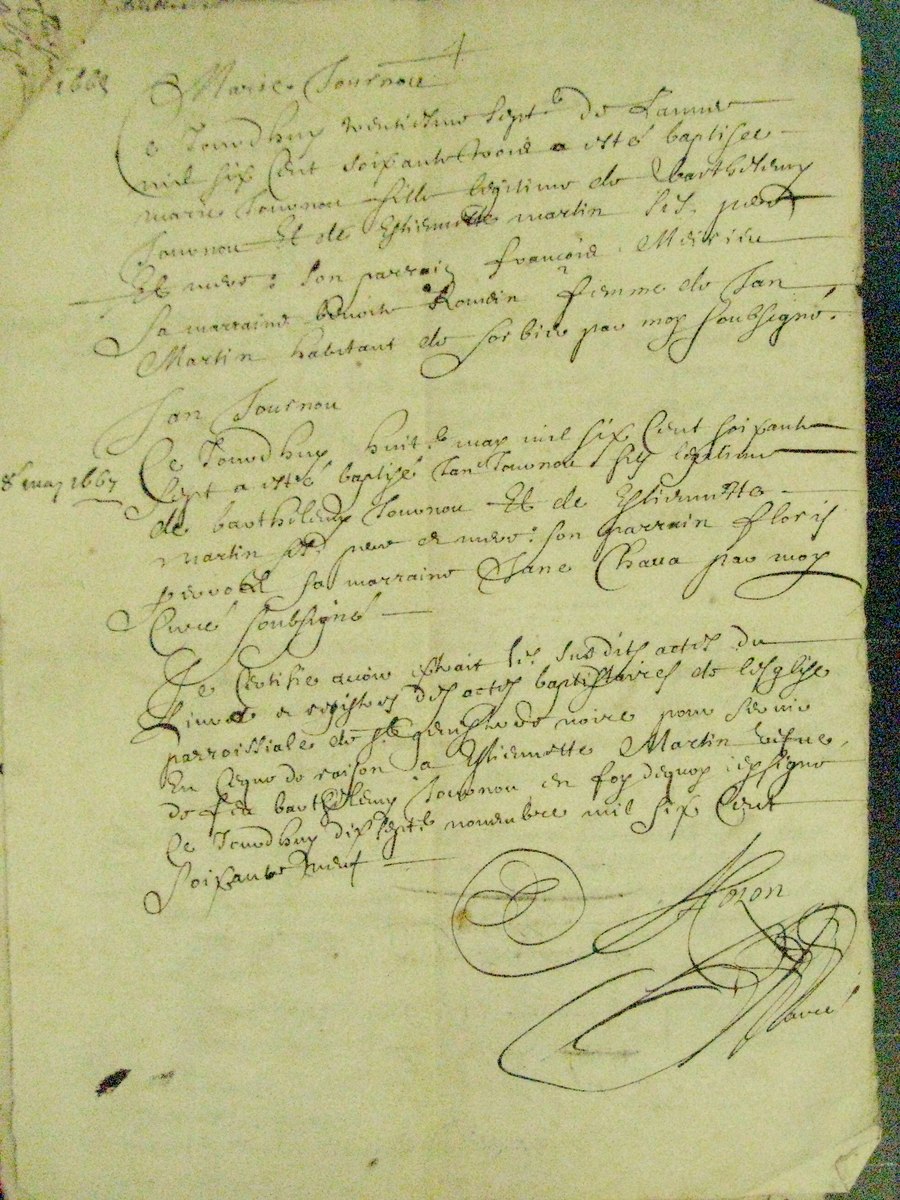 1663
Marie Tournou
Ce Jourdhuy ventiesme septbr de Lannee
mil six Cent soixante trois a esté baptisee
marie Tournou fille legitime de barthelemy
Tournou Et de Estiennette martin ses pere
Et mere : son parrain francois Meirieu
sa marraine benoite Romein femme de Jan
Martin habitant de sorbier par moy soubsigné.
Jan Tournou
8e may 1667
Ce Jourdhuy huit de may mil six Cent soixante
sept a esté baptisé Jan Tournou fils legitime
de barthelemy Tournou Et de Estiennette
martin ses pere et mere : son parrain floris
sa marraine Jane Chava par moy
Curé soubsigné
Je Certifie avoir extrait les susdits actes du
Livre et registres des actes baptistaires de lesglise
parroissiale de st genis terre noire pour servir
En Ce que de raison a Estiennette Martin vefve
de feu barthelemy Tournou en foy dequoy iay signé
Ce Jourdhuy dix sept novembre mil six Cent
soixante neuf
Curé